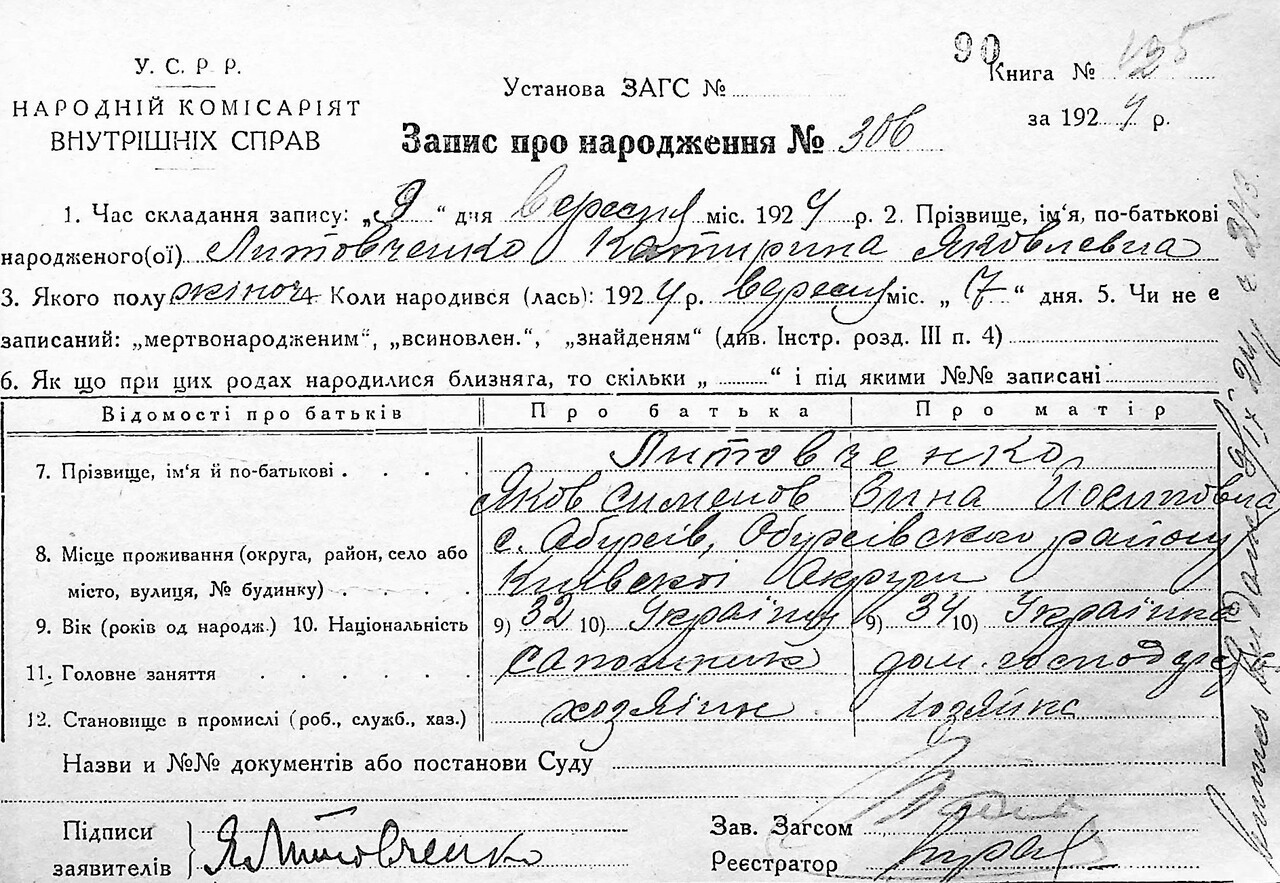 90
У. С. Р. Р.
НАРОДНІЙ КОМІСАРІЯТ
ВНУТРІШНІХ СПРАВ
Установа ЗАГС №
Книга № 125
за 1924 р.
Запис про народження № 306
1. Час складання запису: „9“ дня вересня міс. 1924 р. 2. Прізвище, ім'я, по-батькові
народженого(ої) Литовченко Катирина Яковлевна
3. Якого полу жіноч Коли народився (лась): 1924 р. вересня міс. „7“ дня. 5. Чи не є
записаний: „мертвонародженим“, „всиновлен.“, „знайденям“ (див. Інстр. розд. III п. 4)
6. Як що при цих родах народилися близняга, то скільки „ “ і під якими №№ записані
Відомості про батьків Про батька Про матір
7. Прізвище, ім'я й по-батькові Литовченко
Яков Сименов Зина Йосиповна
8. Місце проживання (округа, район, село або с. Обухів, Обухівского району
місто, вулиця, № будинку) Київскої Округи
9. Вік (років од народж.) 10. Національність 9) 32 10) Українец 9) 34 10) Українка
11. Головне заняття сапожник дом. господар
12. Становище в промислі (роб., служб., хаз.) хозяїин хозяйка
Назви и №№ документів або постанови Суду
Підписи
заявителів } ЯЛитовченко
Зав. Загсом
Реєстратор